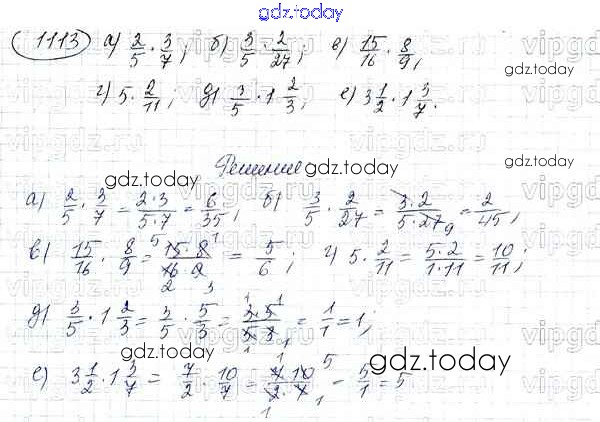 gdz.today
1113 а) 2/5 · 3/7; б) 3/5 · 2/27; в) 15/16 · 8/9;
gdz.today
г) 5 · 2/11; д) 3/5 · 1 2/3; е) 3 1/2 · 1 3/7.
gdz.today
Решение
gdz.today
gdz.today
а) 2/5 · 3/7 = 2·3/5·7 = 6/35; б) 3/5 · 2/27 = 3·2/5·27 9 = 2/45;
в) 15/16 · 8/9 = 5 15·8 1/16·9 2 3 = 5/6; г) 5 · 2/11 = 5·2/1·11 = 10/11;
д) 3/5 · 1 2/3 = 3/5 · 5/3 = 1 3·5 1/5·3 1 1 = 1/1 = 1;
gdz.today
gdz.today
е) 3 1/2 · 1 3/7 = 7/2 · 10/7 = 1 7·10 5/2·7 1 1 = 5/1 = 5
vipgdz